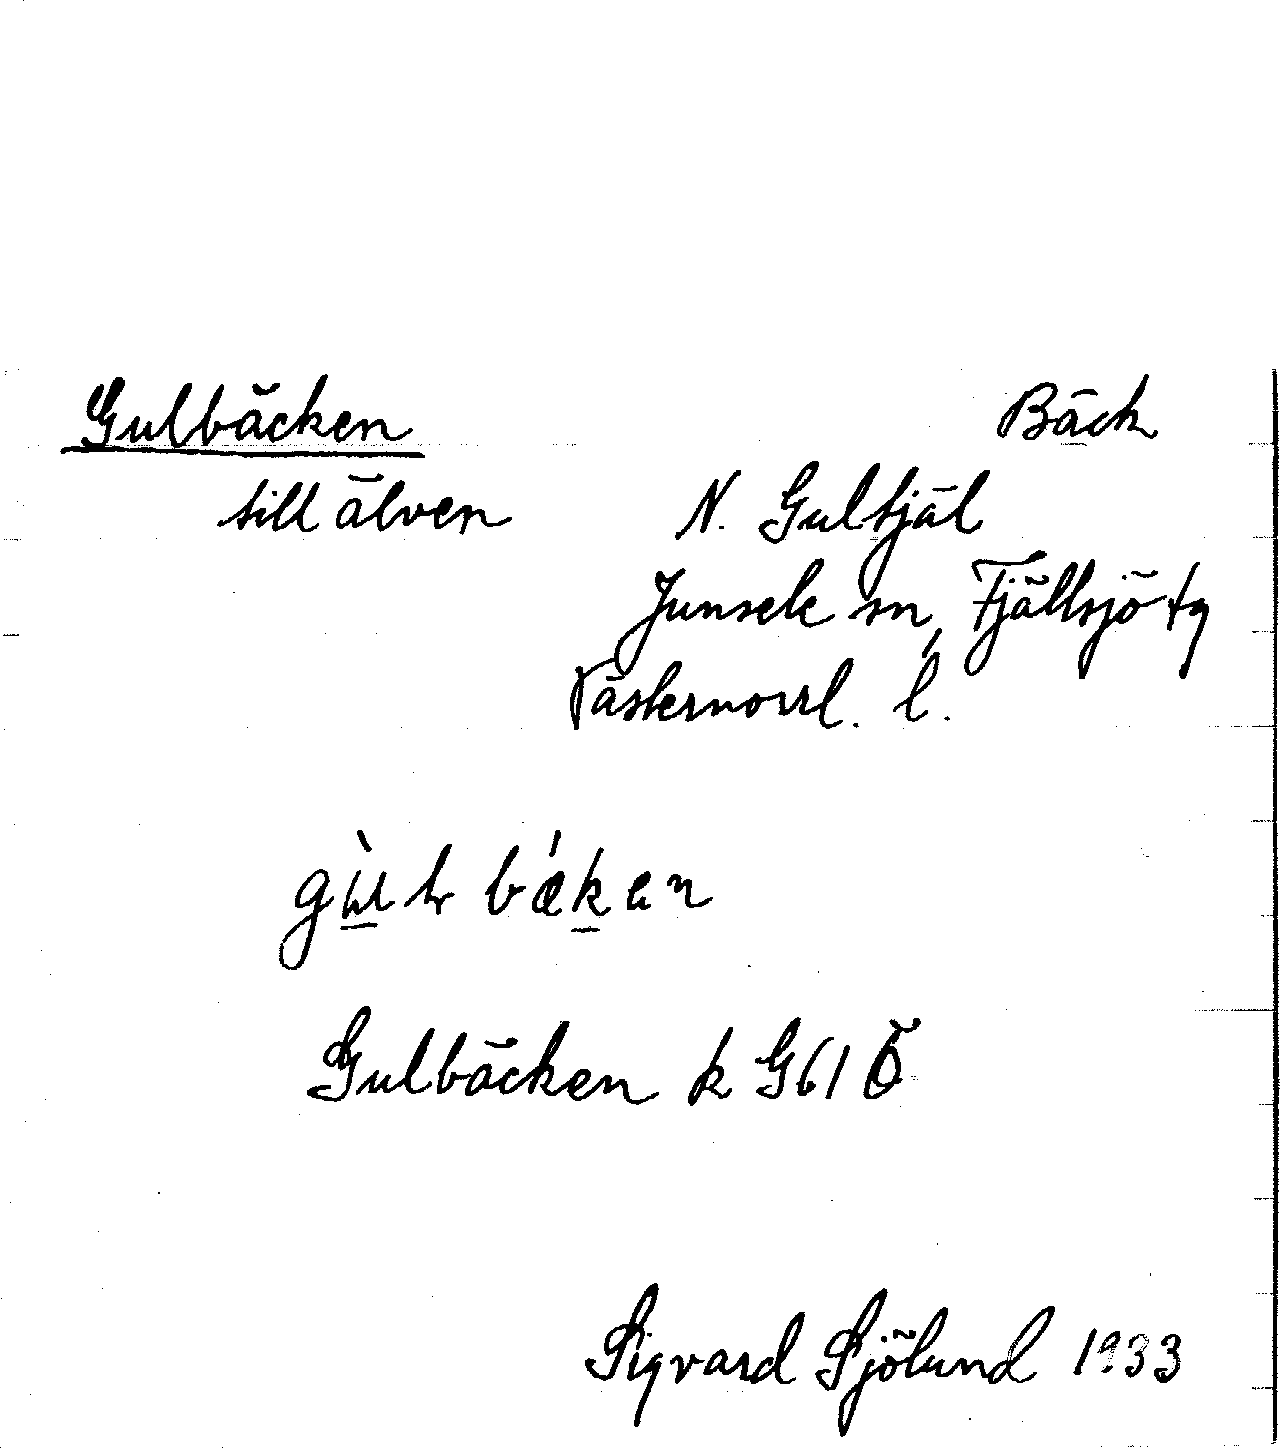 Gulbäcken Bäck
till älven N. Gultjäl
Junsele sn, Fjällsjö tg
Västernorrl. l.
Gulbäcken k G61 Ö
Sigvard Sjölund 1933